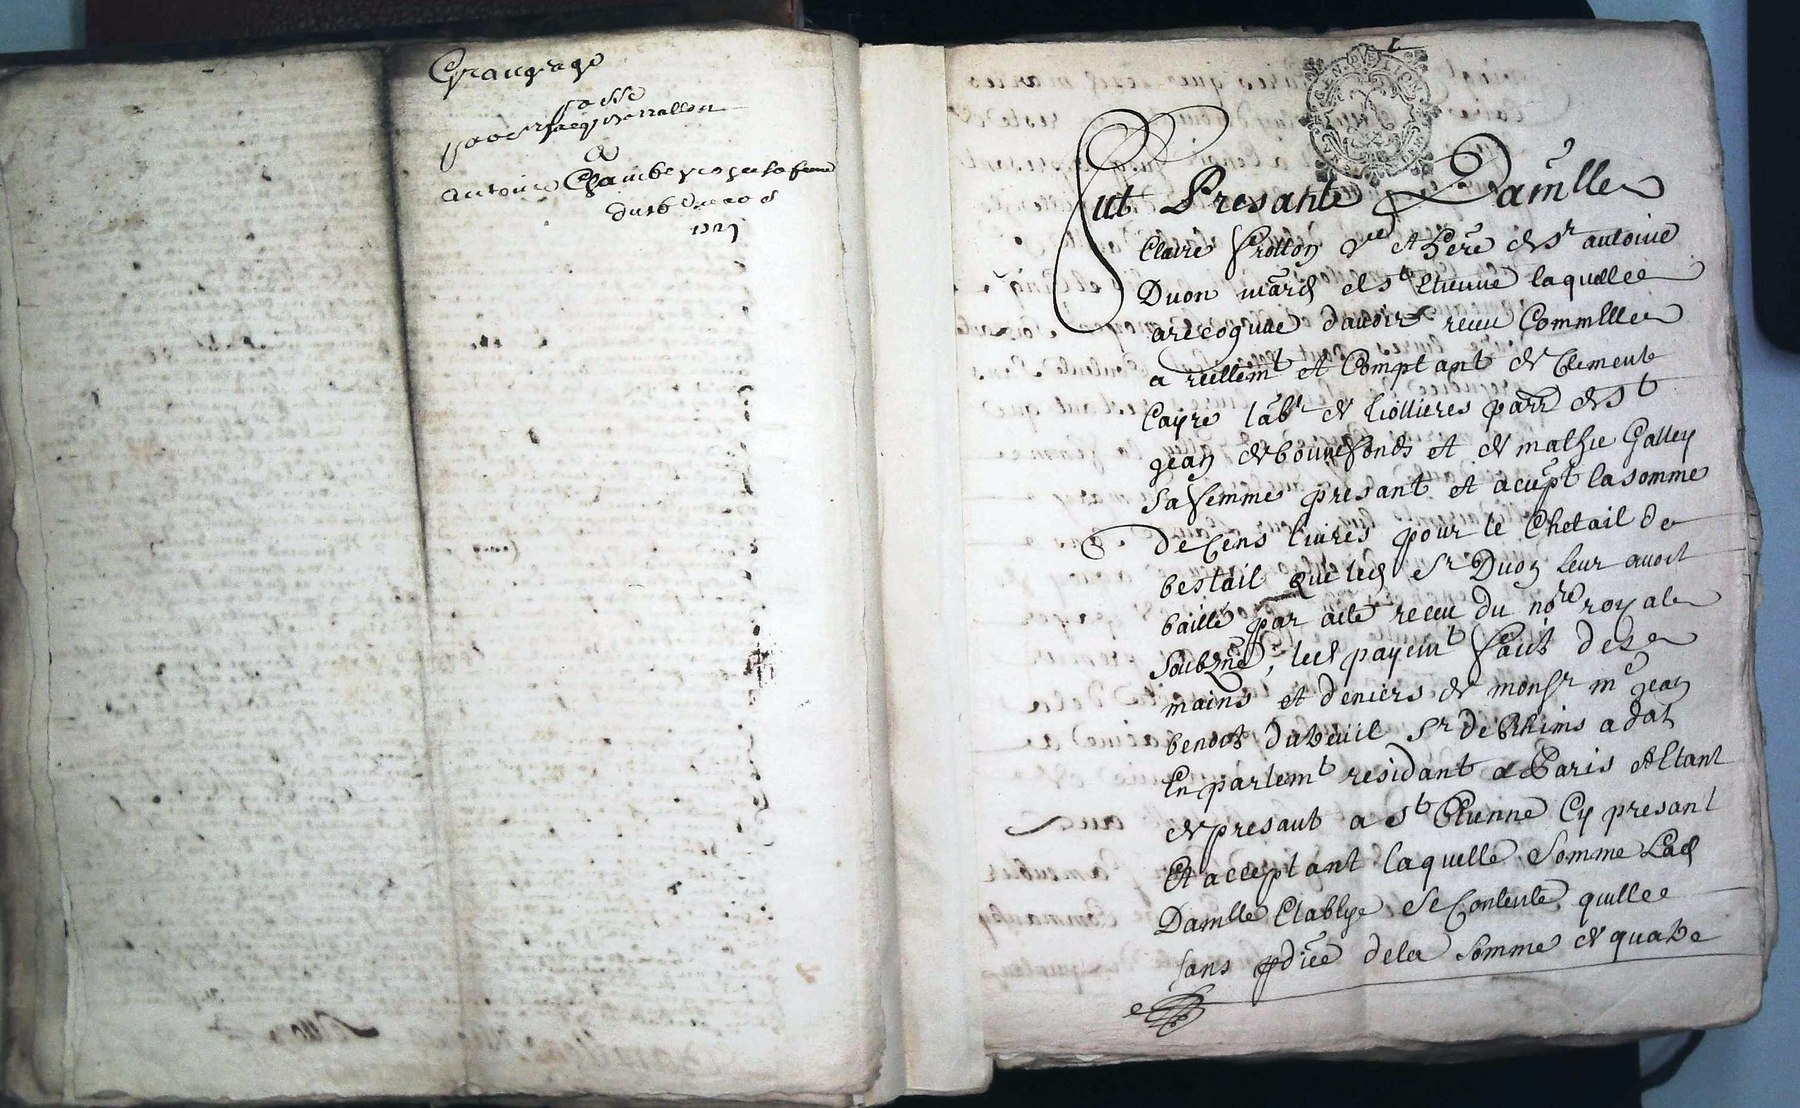 Grangeage
passé
par sr Jacq
a
antoine Chambeyron et sa femme
du 26 mars
1727
GEN DE LION
fut Presante Damlle
Claire frotton vve et here de sr antoine
Duon march de st Etienne laquelle
a recognue davoir receu Comme elle
a reellemt et Comptant de Clement
Cayre labr de liollieres parr de st
jean de bonnefonds et de mathie Galley
sa femme presant et acept la somme
De Cens livres pour le Chetail de
bestail que led sr Duon leur avoit
baillé par acte receu du nore royal
soubzne, led payemt faict des
mains et deniers de monsr me jean
benoit duteuil sr de Rhims adat
En parlemt residant a Paris Estant
de presant a st Etienne Cy presant
Et acceptant laquelle somme Lad
Damlle Etablye se Contente quitte
sans pdice de la somme de quatre